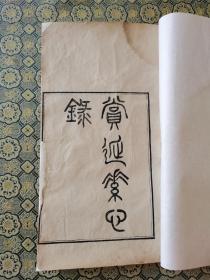 賞延素心
錄